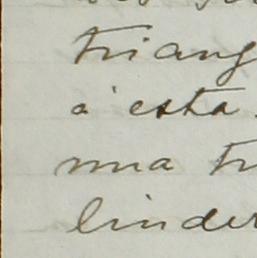 triang
á esta
una tr
linder